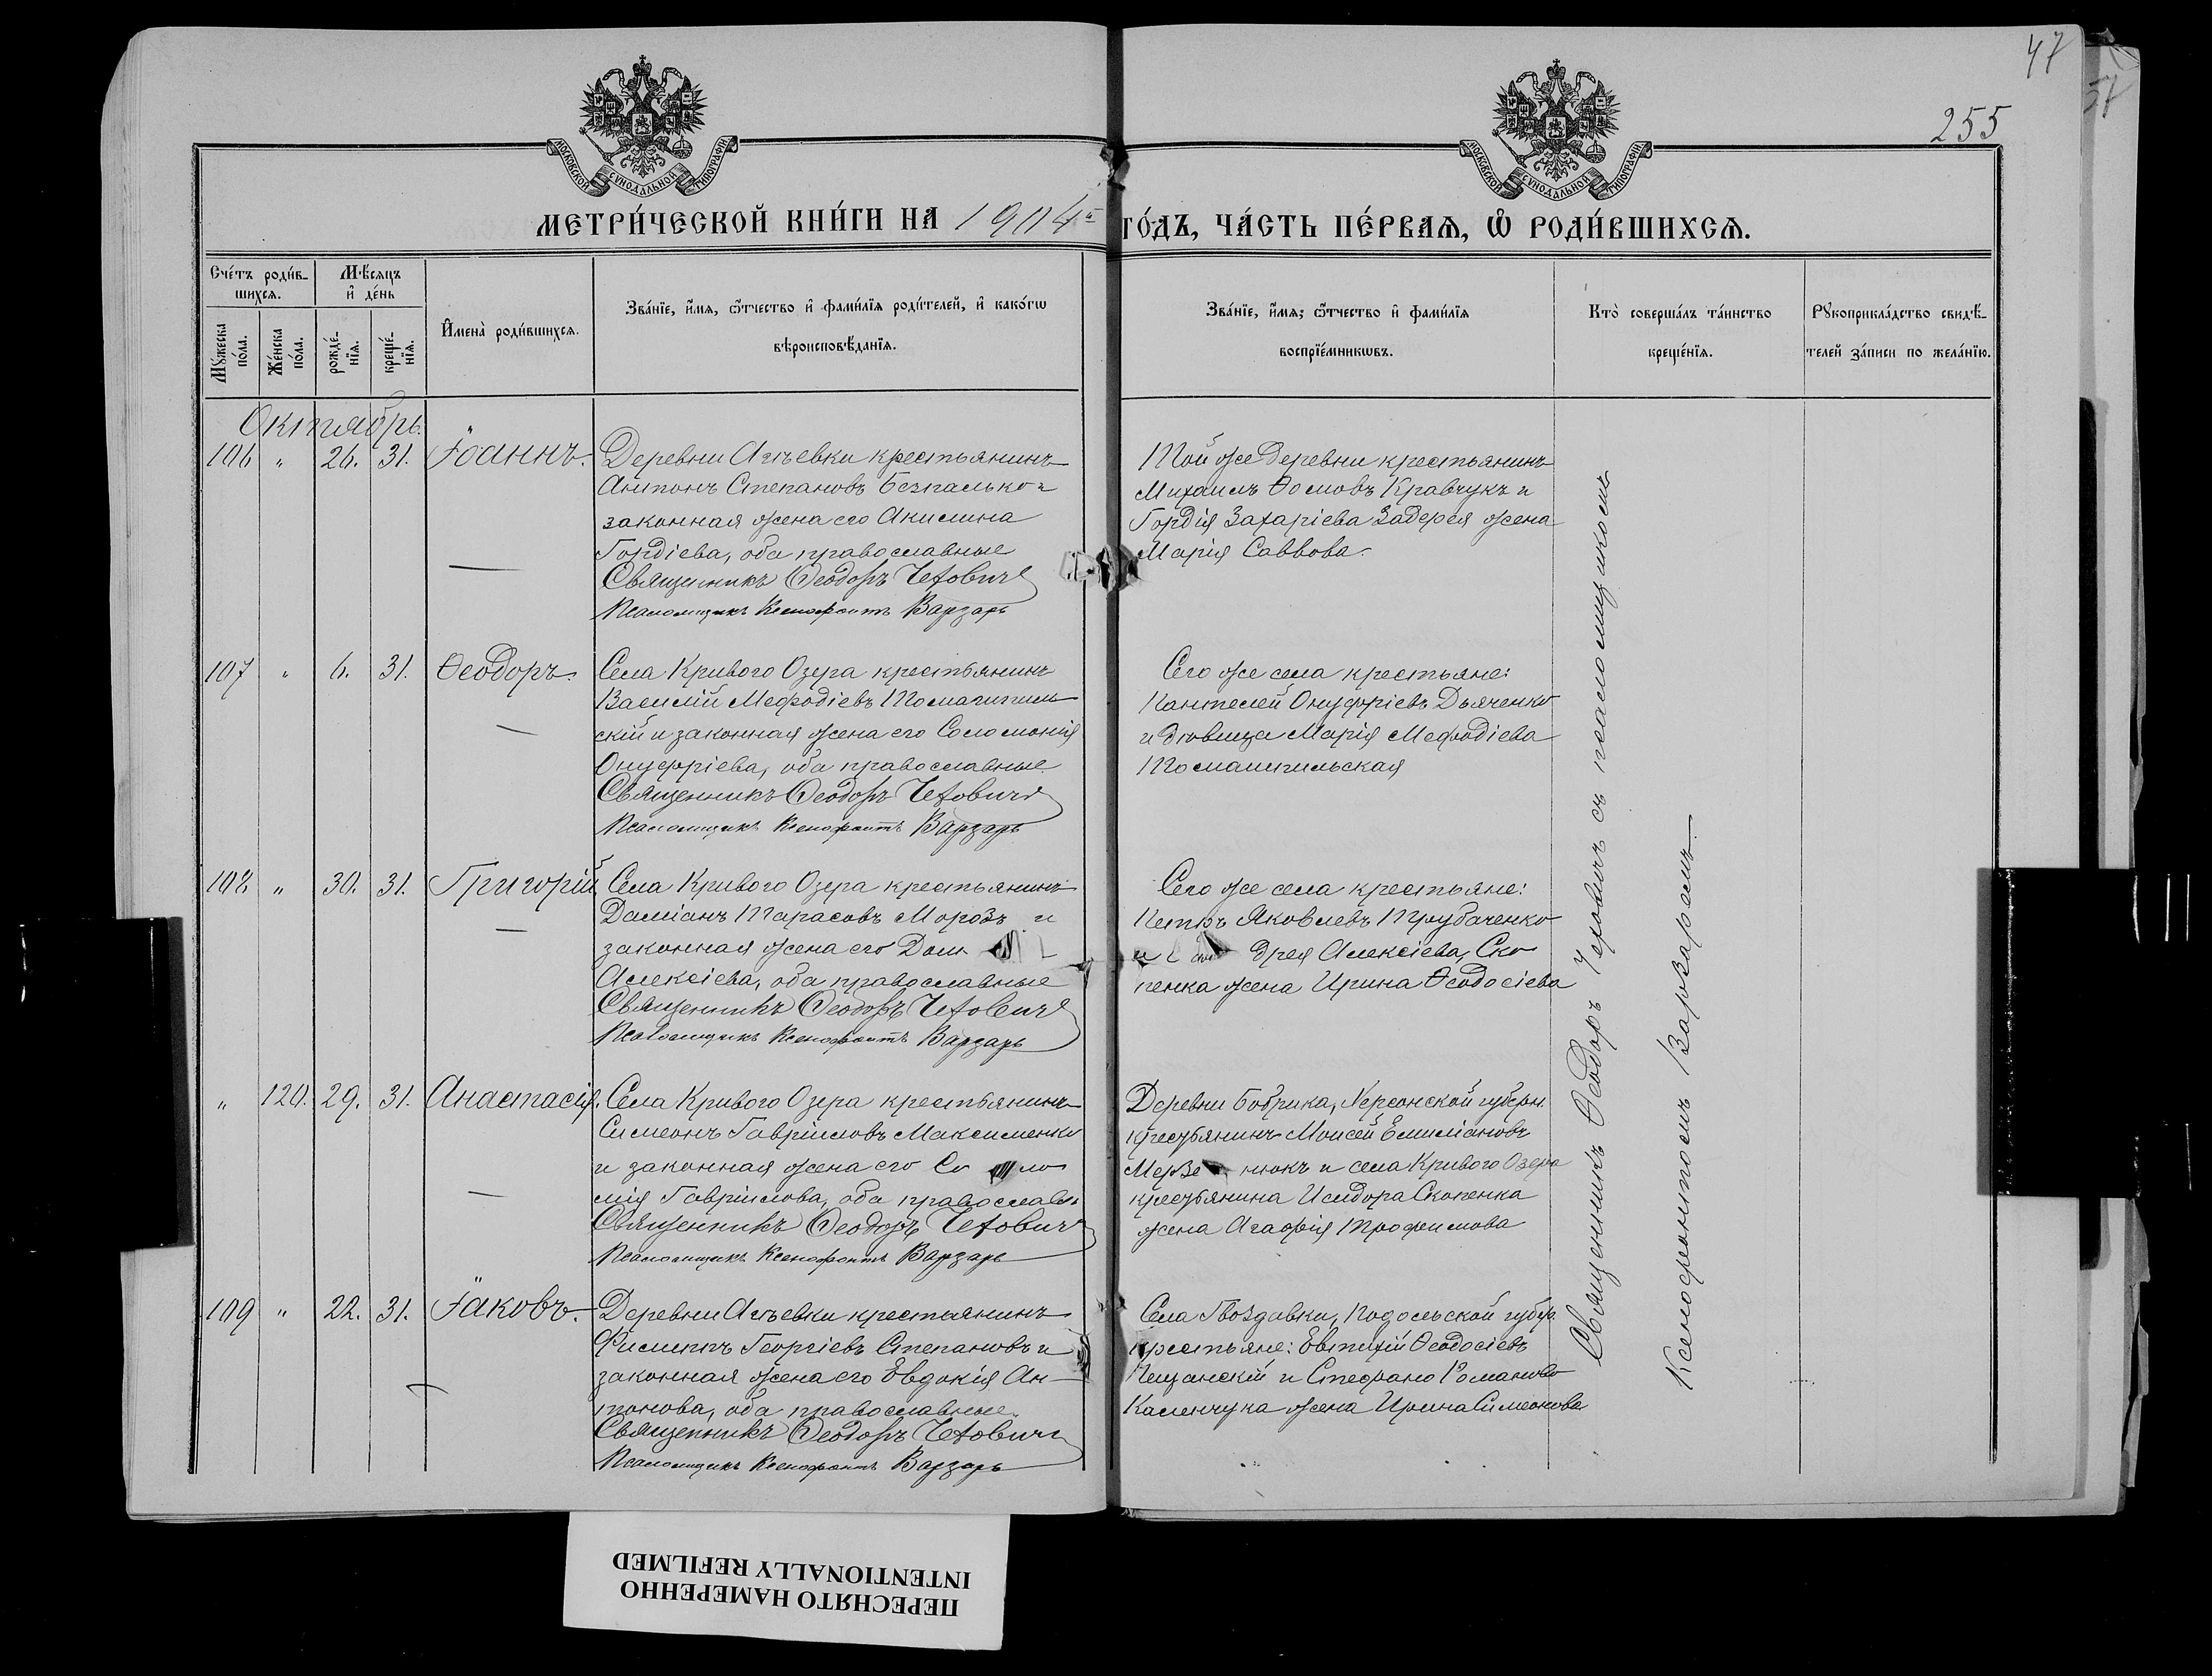 47
255
МОСКОВСКОЙ СѴНОДАЛЬНОЙ ТИПОГРАФІИ
МОСКОВСКОЙ СѴНОДАЛЬНОЙ ТИПОГРАФІИ
МЕТРИ́ЧЕСКОЙ КНИ́ГИ НА 1904й ГО́ДЪ, ЧА́СТЬ ПЕ́РВАѦ, Ѽ РОДИ́ВШИХСѦ.
Сче́тъ роди́в-
шихсѧ.
Мѣ́сѧцъ
и҆ де́нь
Мꙋ́жеска по́ла.
Же́нска по́ла.
рожде́-нїѧ.
креще́-нїѧ.
И҆мена̀ роди́вшихсѧ.
Зва́нїе, и҆́мѧ, ѻ҆́тчество и҆ фами́лїѧ роди́телей, и҆ како́гѡ
вѣроисповѣ́данїѧ.
Зва́нїе, и҆́мѧ, ѻ҆́тчество и҆ фами́лїѧ
воспрїе́мникѡвъ.
Кто̀ соверша́лъ та́инство
креще́нїѧ.
Рꙋкоприкла́дство свидѣ́-
телей за́писи по жела́нїю.
Октябрь.
106 " 26. 31. Іоаннъ.
Деревни Агъевки крестьянинъ
Антонъ Степановъ Безпалько и
законная жена его Акилина
Гордіева, оба православные
Священникъ Ѳеодоръ Чеховичъ
Псаломщикъ Ксенофонтъ Варзарь
Той же деревни крестьянинъ
Михаилъ Ѳомовъ Кравчукъ и
Гордія Захаріева Задерея жена
Марія Саввова.
107 " 6. 31. Ѳеодоръ.
Села Кривого Озера крестьянинъ
Василій Мефодіевъ
скій и законная жена его Соломонія
Онуфріева, оба православные.
Священникъ Ѳеодоръ Чеховичъ
Псаломщикъ Ксенофонтъ Варзарь
Сего же села крестьяне:
Пантелей Онуфріевъ Дьяченко
и дѣвица Марія Мефодіева
108 " 30. 31. Григорій
Села Кривого Озера крестьянинъ
Даміанъ Тарасовъ Морозъ и
законная жена его Дом
Алексіева, оба православные
Священникъ Ѳеодоръ Чеховичъ
Псаломщикъ Ксенофонтъ Варзарь
Сего же села крестьяне:
Петръ Яковлевъ Трубаченко
и дрея Алексіева, Ско
пенка жена Ирина Ѳеодосіева
" 120. 29. 31. Анастасія.
Села Кривого Озера крестьянинъ
Симеонъ Гавріиловъ Максименко
и законная жена его Со ло
мія Гавріилова, оба православн
Священникъ Ѳеодоръ Чеховичъ
Псаломщикъ Ксенофонтъ Варзарь
Деревни Бобрика, Херсонской губерн.
крестьянинъ Моисей Емиліановъ
Мерзе нюкъ и села Кривого Озера
крестьянина Исидора Скопенка
жена Агафія Трофимова
109 " 22. 31. Іаковъ.
Деревни Агъевки крестьянинъ
Филиппъ Георгіевъ Степановъ и
законная жена его Евдокія Ан-
тонова, оба православные.
Священникъ Ѳеодоръ Чеховичъ
Псаломщикъ Ксенофонтъ Варзарь
Села Гвоздавки, Подольской губер.
крестьяне: Евтихій Ѳеодосіевъ
Пещанскій и Стефана Романова
Каленчука жена Ирина Симеонова
Священникъ Ѳеодоръ Чеховичъ съ псаломщикомъ
Ксенофонтомъ Варзаремъ.
ПЕРЕСНЯТО НАМЕРЕННО
INTENTIONALLY REFILMED